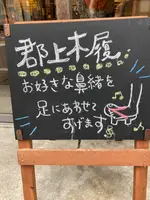 郡上木履
お好きな鼻緒を
足にあわせて
あげます